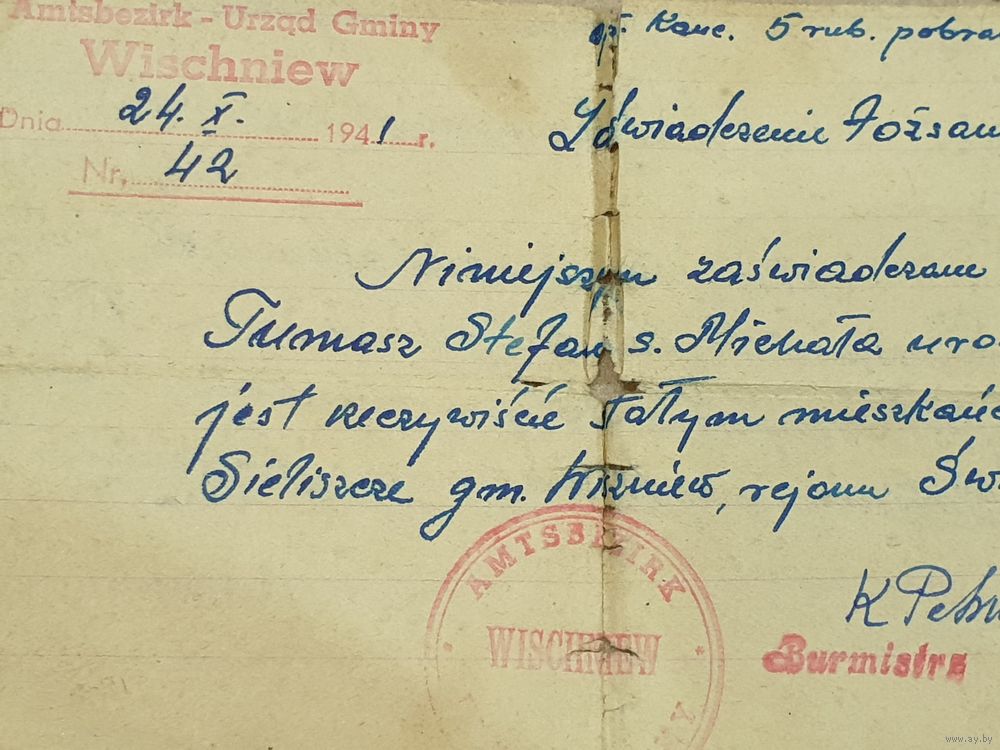 Amtsbezirk - Urząd Gminy
Wischniew
Dnia 24. X. 1941 r.
Nr. 42
op. Kanc. 5 rub. pobra
Zświadczenie tożsam
Niniejszym zaświadczam
Tumasz Stefan s. Michała uro
jest rzeczywiście stałym mieszkańc
Sieliszcze gm. Wiszniew, rejonu Świ
AMTSBEZIRK
WISCHNIEW
K Pet
Burmistrz
www.ay.by